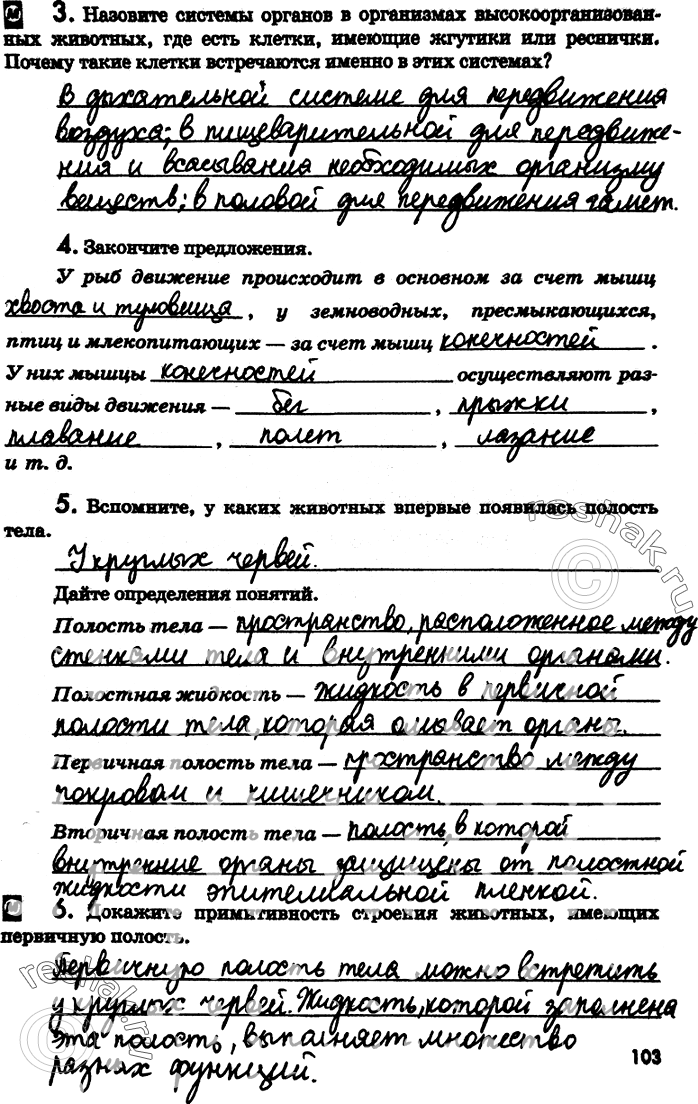 М 3. Назовите системы органов в организмах высокоорганизован-
ных животных, где есть клетки, имеющие жгутики или реснички.
Почему такие клетки встречаются именно в этих системах?
В дыхательной системе для передвижения
воздуха; в пищеварительной для передвиже-
ния и всасывания необходимых организму
веществ; в половой для передвижения гамет.
4. Закончите предложения.
У рыб движение происходит в основном за счет мышц
хвоста и туловища, у земноводных, пресмыкающихся,
птиц и млекопитающих — за счет мышц конечностей.
У них мышцы конечностей осуществляют раз-
ные виды движения — бег, прыжки,
плавание, полет, лазание
и т. д.
5. Вспомните, у каких животных впервые появилась полость
тела.
У круглых червей.
Дайте определения понятий.
Полость тела — пространство, расположенное между
стенками тела и внутренними органами.
Полостная жидкость — жидкость в первичной
полости тела, которая омывает органы.
Первичная полость тела — пространство между
покровом и кишечником.
Вторичная полость тела — полость, в которой
внутренние органы защищены от полостной
жидкости эпителиальной пленкой.
М 6. Докажите примитивность строения животных, имеющих
первичную полость.
Первичную полость тела можно встретить
у круглых червей. Жидкость, которой заполнена
эта полость, выполняет множество
разных функций.
103
reshak.ru
reshak.ru